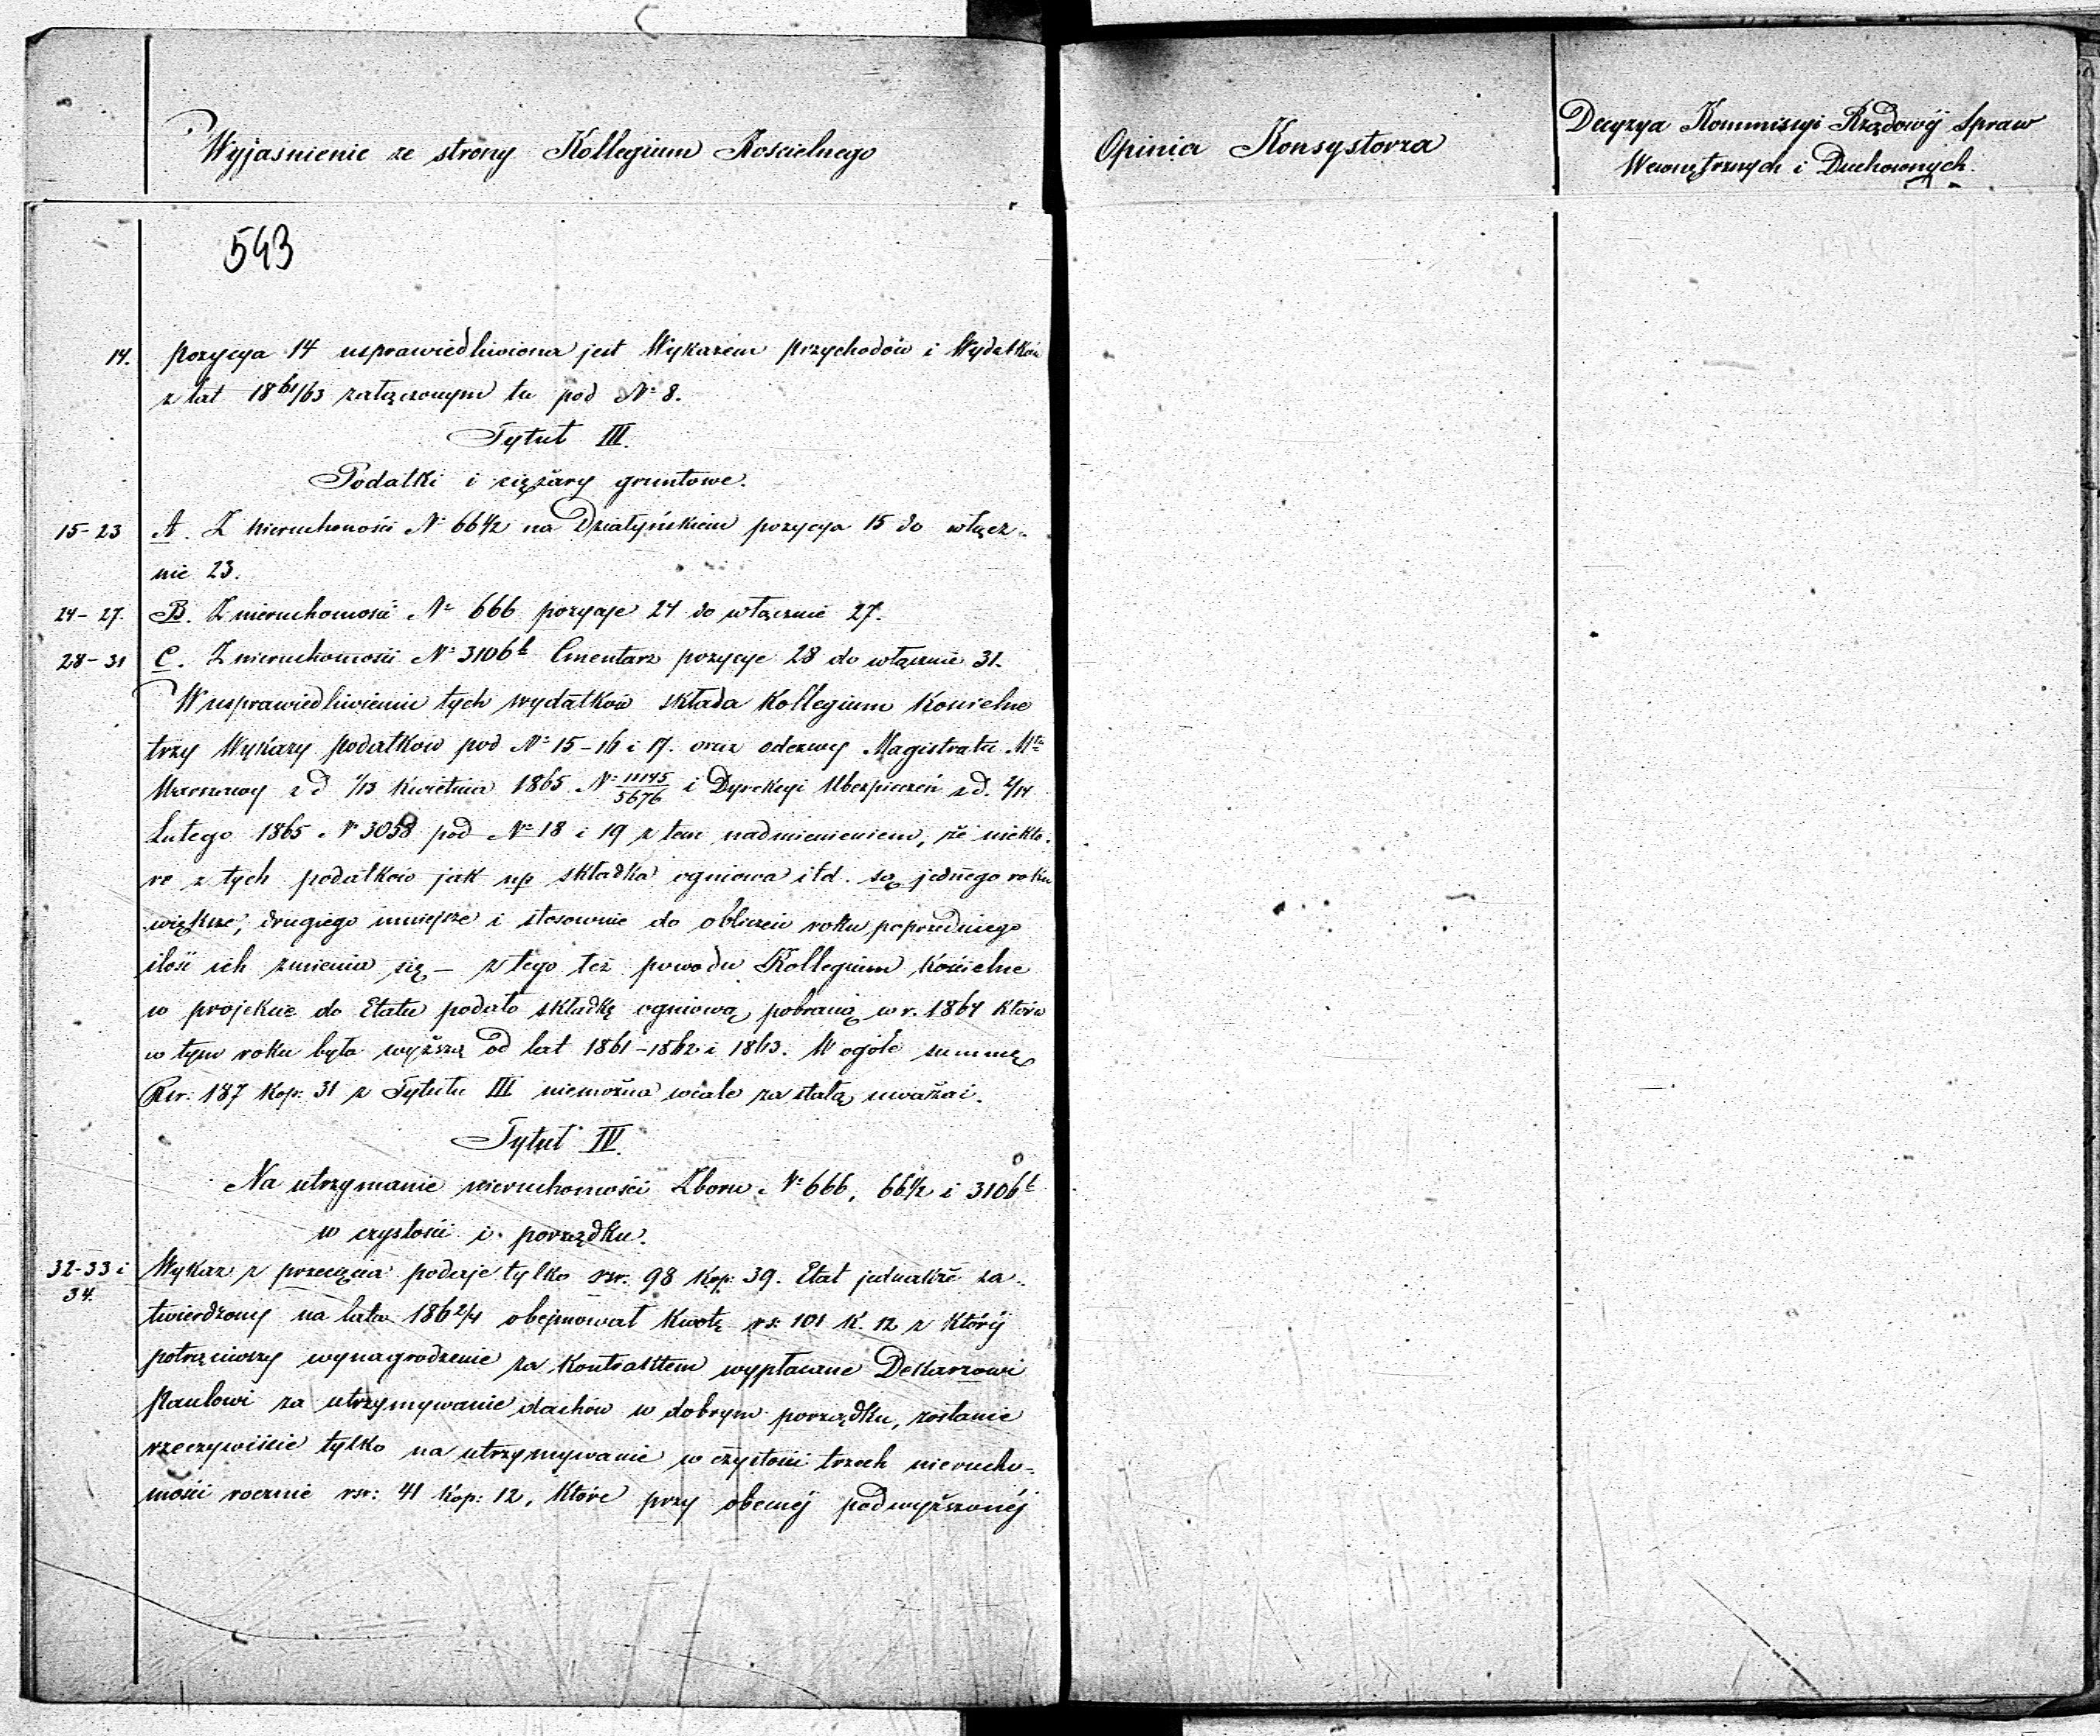 Wyjasnienie ze strony Kollegium Kościelnego
Opinia Konsystorza
Decyzya Kommissyi Rządowéj Spraw
Wewnętrznych i Duchownych.
543
14. pozycya 14 usprawiedliwiona jest Wykazem przychodów i Wydatków
z lat 18 61/63 załączonym tu pod Nº 8.
Tytuł III.
Podatki i ciężary gruntowe.
15-23 A. Z Nieruchomości Nº 66½ na Działyńskiem pozycya 15 do włącz-
nie 23.
24-27. B. Z nieruchomości Nº 666 pozycye 24 do włącznie 27.
28-31 C. Z nieruchomości Nº 3106b Cmentarz pozycye 28 do włącznie 31.
W usprawiedliwieniu tych wydatków składa Kollegium Kościelne
trzy Wykazy podatków pod Nº 15-16 i 17. oraz odezwy Magistratu Mta
Warszawy z d 1/13 Kwietnia 1865 Nº 11145/5676 i Dyrekcyi Ubezpieczeń z d. 2/14
Lutego 1865 Nº 3058 pod Nº 18 i 19 z tem nadmienieniem, że niektó-
re z tych podatków jak np składka ogniowa itd. są jednego roku
większe, drugiego mniejsze i stosownie do obliczeń roku poprzedniego
ilość ich zmienia się - z tego też powodu Kollegium Kościelne
w projekcie do Etatu podało składkę ogniową pobraną w r. 1864 która
w tym roku była wyższą od lat 1861-1862 i 1863. W ogóle summę
Rsr. 187 Kop: 31 z Tytułu III niemożna wcale za stałą uważać.
Tytuł IV.
Na utrzymanie nieruchomości Zboru Nº 666, 66½ i 3106b
w czystości i porządku.
32-33 i Wykaz z przecięcia podaje tylko rsr. 98 Kop: 39. Etat jednakże za-
34.
twierdzony na lata 1862/4 obejmował Kwotę rs: 101 K. 12 z któréj
potrąciwszy wynagrodzenie za Kontraktem wypłacane Dekarzowi
Paulowi za utrzymywanie dachów w dobrym porządku, zostanie
rzeczywiście tylko na utrzymywanie w czystości trzech nierucho-
mości rocznie rsr: 41 Kop: 12, które przy obecnéj podwyższonéj